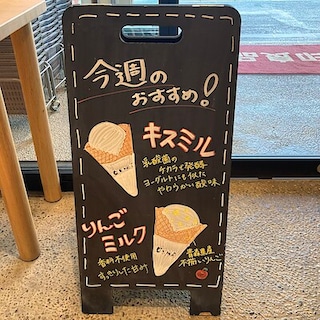 今週の
おすすめ!
キスミル
乳酸菌の
チカラで発酵
ヨーグルトにも似た
やわらかい酸味
りんご
ミルク
香料不使用
すっきりした甘み
青森県産
不揃いりんご